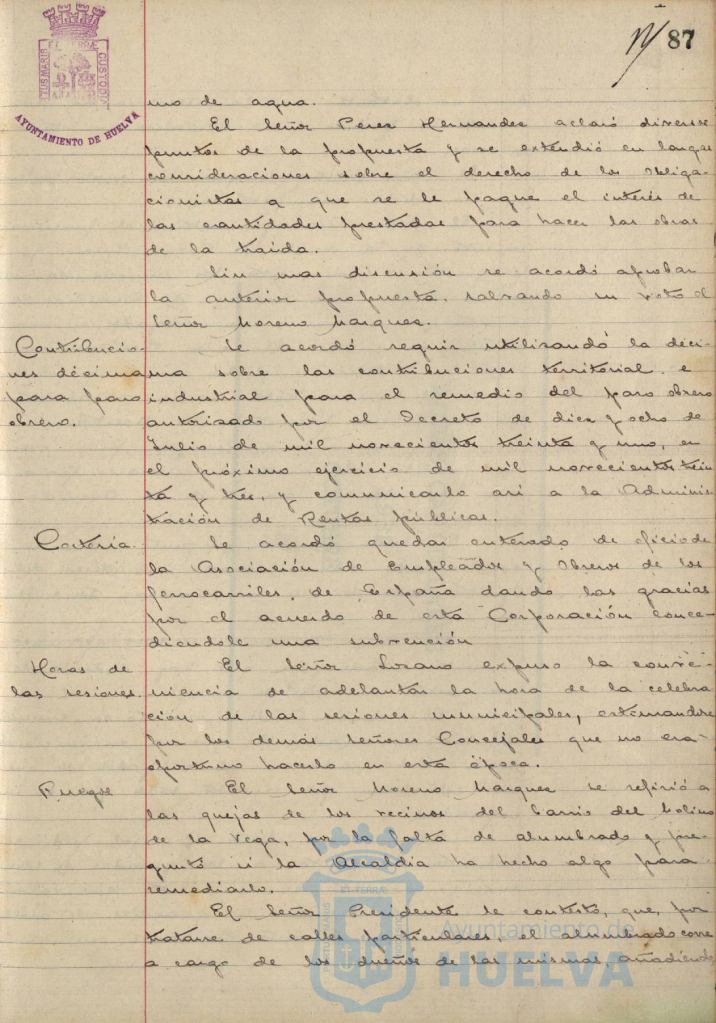 87
PORTUS MARIS ET TERRÆ CUSTODIA
AYUNTAMIENTO DE HUELVA
mo de agua.
El Señor Perez Hernandez aclaró diversos
puntos de la propuesta y se extendió en largas
consideraciones sobre el derecho de los Obliga-
cionistas a que se le pague el interés de
las cantidades prestadas para hacer las obras
de la traida.
Sin mas discusión se acordó aprobar
la anterior propuesta, salvando su voto el
Señor Moreno Marquez.
Contribucio-
nes décima
para paro
obrero.
Se acordó seguir utilizando la deci-
ma sobre las contribuciones territorial e
industrial para el remedio del paro obrero
autorizado por el Decreto de diez y ocho de
Julio de mil novecientos treinta y uno, en
el próximo ejercicio de mil novecientos trein
ta y tres, y comunicarlo asi a la Adminis-
tración de Rentas públicas.
Cortesía.
Se acordó quedar enterado de oficio de
la Asociación de Empleados y Obreros de los
ferrocarriles, de España dando las gracias
por el acuerdo de esta Corporación conce-
diendole una subvención
Horas de
las sesiones.
El Señor Lozano expuso la conve-
niencia de adelantar la hora de la celebra
ción de las sesiones municipales, estimandose
por los demás Señores Concejales que no era
oportuno hacerlo en esta época.
Ruegos
El Señor Moreno Marquez se refirió a
las quejas de los vecinos del barrio del Molino
de la Vega, por la falta de alumbrado y pre-
guntó si la Alcaldia ha hecho algo para
remediarlo.
El Señor Presidente le contestó, que, por
tratarse de calles particulares, el alumbrado corre
a cargo de los dueños de las mismas, añadiendo
Ayuntamiento de
HUELVA